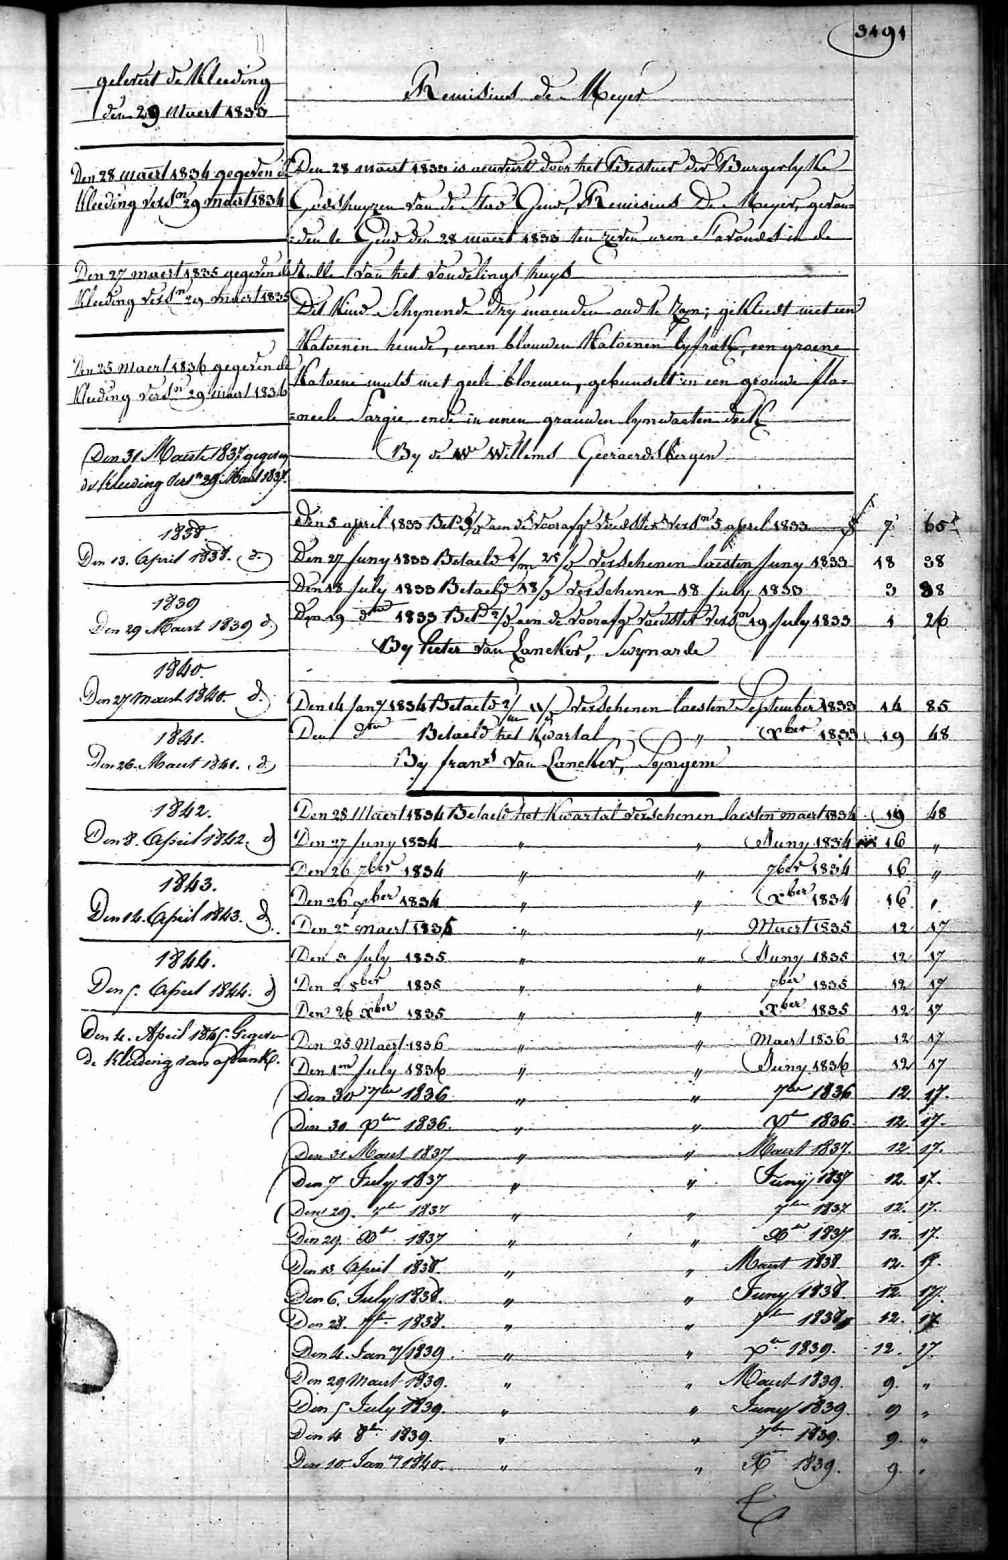 3491
gelevert de Kleeding
den 29 Maert 1833
Remisius de Meyer
Den 28 maert 1834 gegeven de
Kleeding versn 29 maert 1834
Den 27 maert 1835 gegeven de
Kleeding versn 29 maert 1835
Den 25 Maert 1836 gegeven de
Kleeding versn 29 maert 1836
Den 31 Maert 1837 gegeven
de Kleeding versn 29 Maert 1837
1838
Den 13. April 1838. d.
1839
Den 29 Maert 1839 d.
1840.
Den 27 Maert 1840. d.
1841.
Den 26. Maert 1841. d
1842.
Den 8. April 1842. d
1843.
Den 14. April 1843. d.
1844.
Den 5. April 1844. d
Den 4. April 1845. Gegeven
de Kleeding van
Den 28 maert 1833 is door het Bestuer der Burgerlyke
Godshuyzen van de Stad Gend, Remisius De Meyer, gevon-
=den te Gend den 28 maert 1833 ten zeven uren S'avonds in de
Rolle van het vondelings huys
Dit Kind Schynende dry maenden oud te zyn; gekleedt met een
Katoenen hemde, eenen blauwen Katoenen lyfrok, een groene
Katoene muts met geele bloemen, gebunselt in een grouwe fla-
=neele Sargie ende in eenen grauwen lynwaeten doek
By de Wwe Willems Geeraerdsbergen
Den 5 april 1833 Betd aen de voorafge voedster versn 5 april 1833 f 7 65
Den 27 Juny 1833 Betaeld verschenen laesten Juny 1833 18 38
Den 18 July 1833 Betaeld 18/d verschenen 18 July 1833 3 38
Den 19 dto 1833 Betd aen de voorafge voedster versn 19 July 1833 1 26
By Pieter van Lancker, Swynarde
Den 14 Jany 1834 Betaeld verschenen laesten September 1833 14 85
Den dto Betaeld het Kwartal " Xber 1833 19 48
By frans van Lancker, Syngem
Den 28 Maert 1834 Betaeld het Kwartal verschenen laesten maert 1834 19 48
Den 27 Juny 1834 " " Juny 1834 16 "
Den 26 7ber 1834 " " 7ber 1834 16 "
Den 26 xber 1834 " " Xber 1834 16 "
Den 27 maert 1835 " " Maert 1835 12 17
Den 3 July 1835 " " Juny 1835 12 17
Den 2 8ber 1835 " " 7ber 1835 12 17
Den 26 xber 1835 " " Xber 1835 12 17
Den 25 Maert 1836 " " Maert 1836 12 17
Den 1n July 1836 " " Juny 1836 12 17
Den 30 7ber 1836 " " 7ber 1836 12. 17.
Den 30 xber 1836. " " Xr 1836. 12. 17.
Den 31 Maert 1837 " " Maert 1837. 12. 17.
Den 7 July 1837 " " Juny 1837 12. 17.
Den 29. 7ber 1837 " " 7ber 1837 12. 17.
Den 29. Xbr 1837 " " Xbr 1837 12. 17.
Den 13 April 1838. " " Maert 1838 12. 17.
Den 6. July 1838. " " Juny 1838. 12. 17.
Den 28. 7br 1838. " " 7br 1838 12. 17
Den 4. Jany 1839. " " xr 1839. 12. 17.
Den 29 Maert 1839. " " Maert 1839. 9. "
Den 5 July 1839. " " Juny 1839. 9 "
Den 4 8br 1839. " " 7ber 1839. 9. "
Den 10 Jany 1840. " " Xr 1839. 9. "